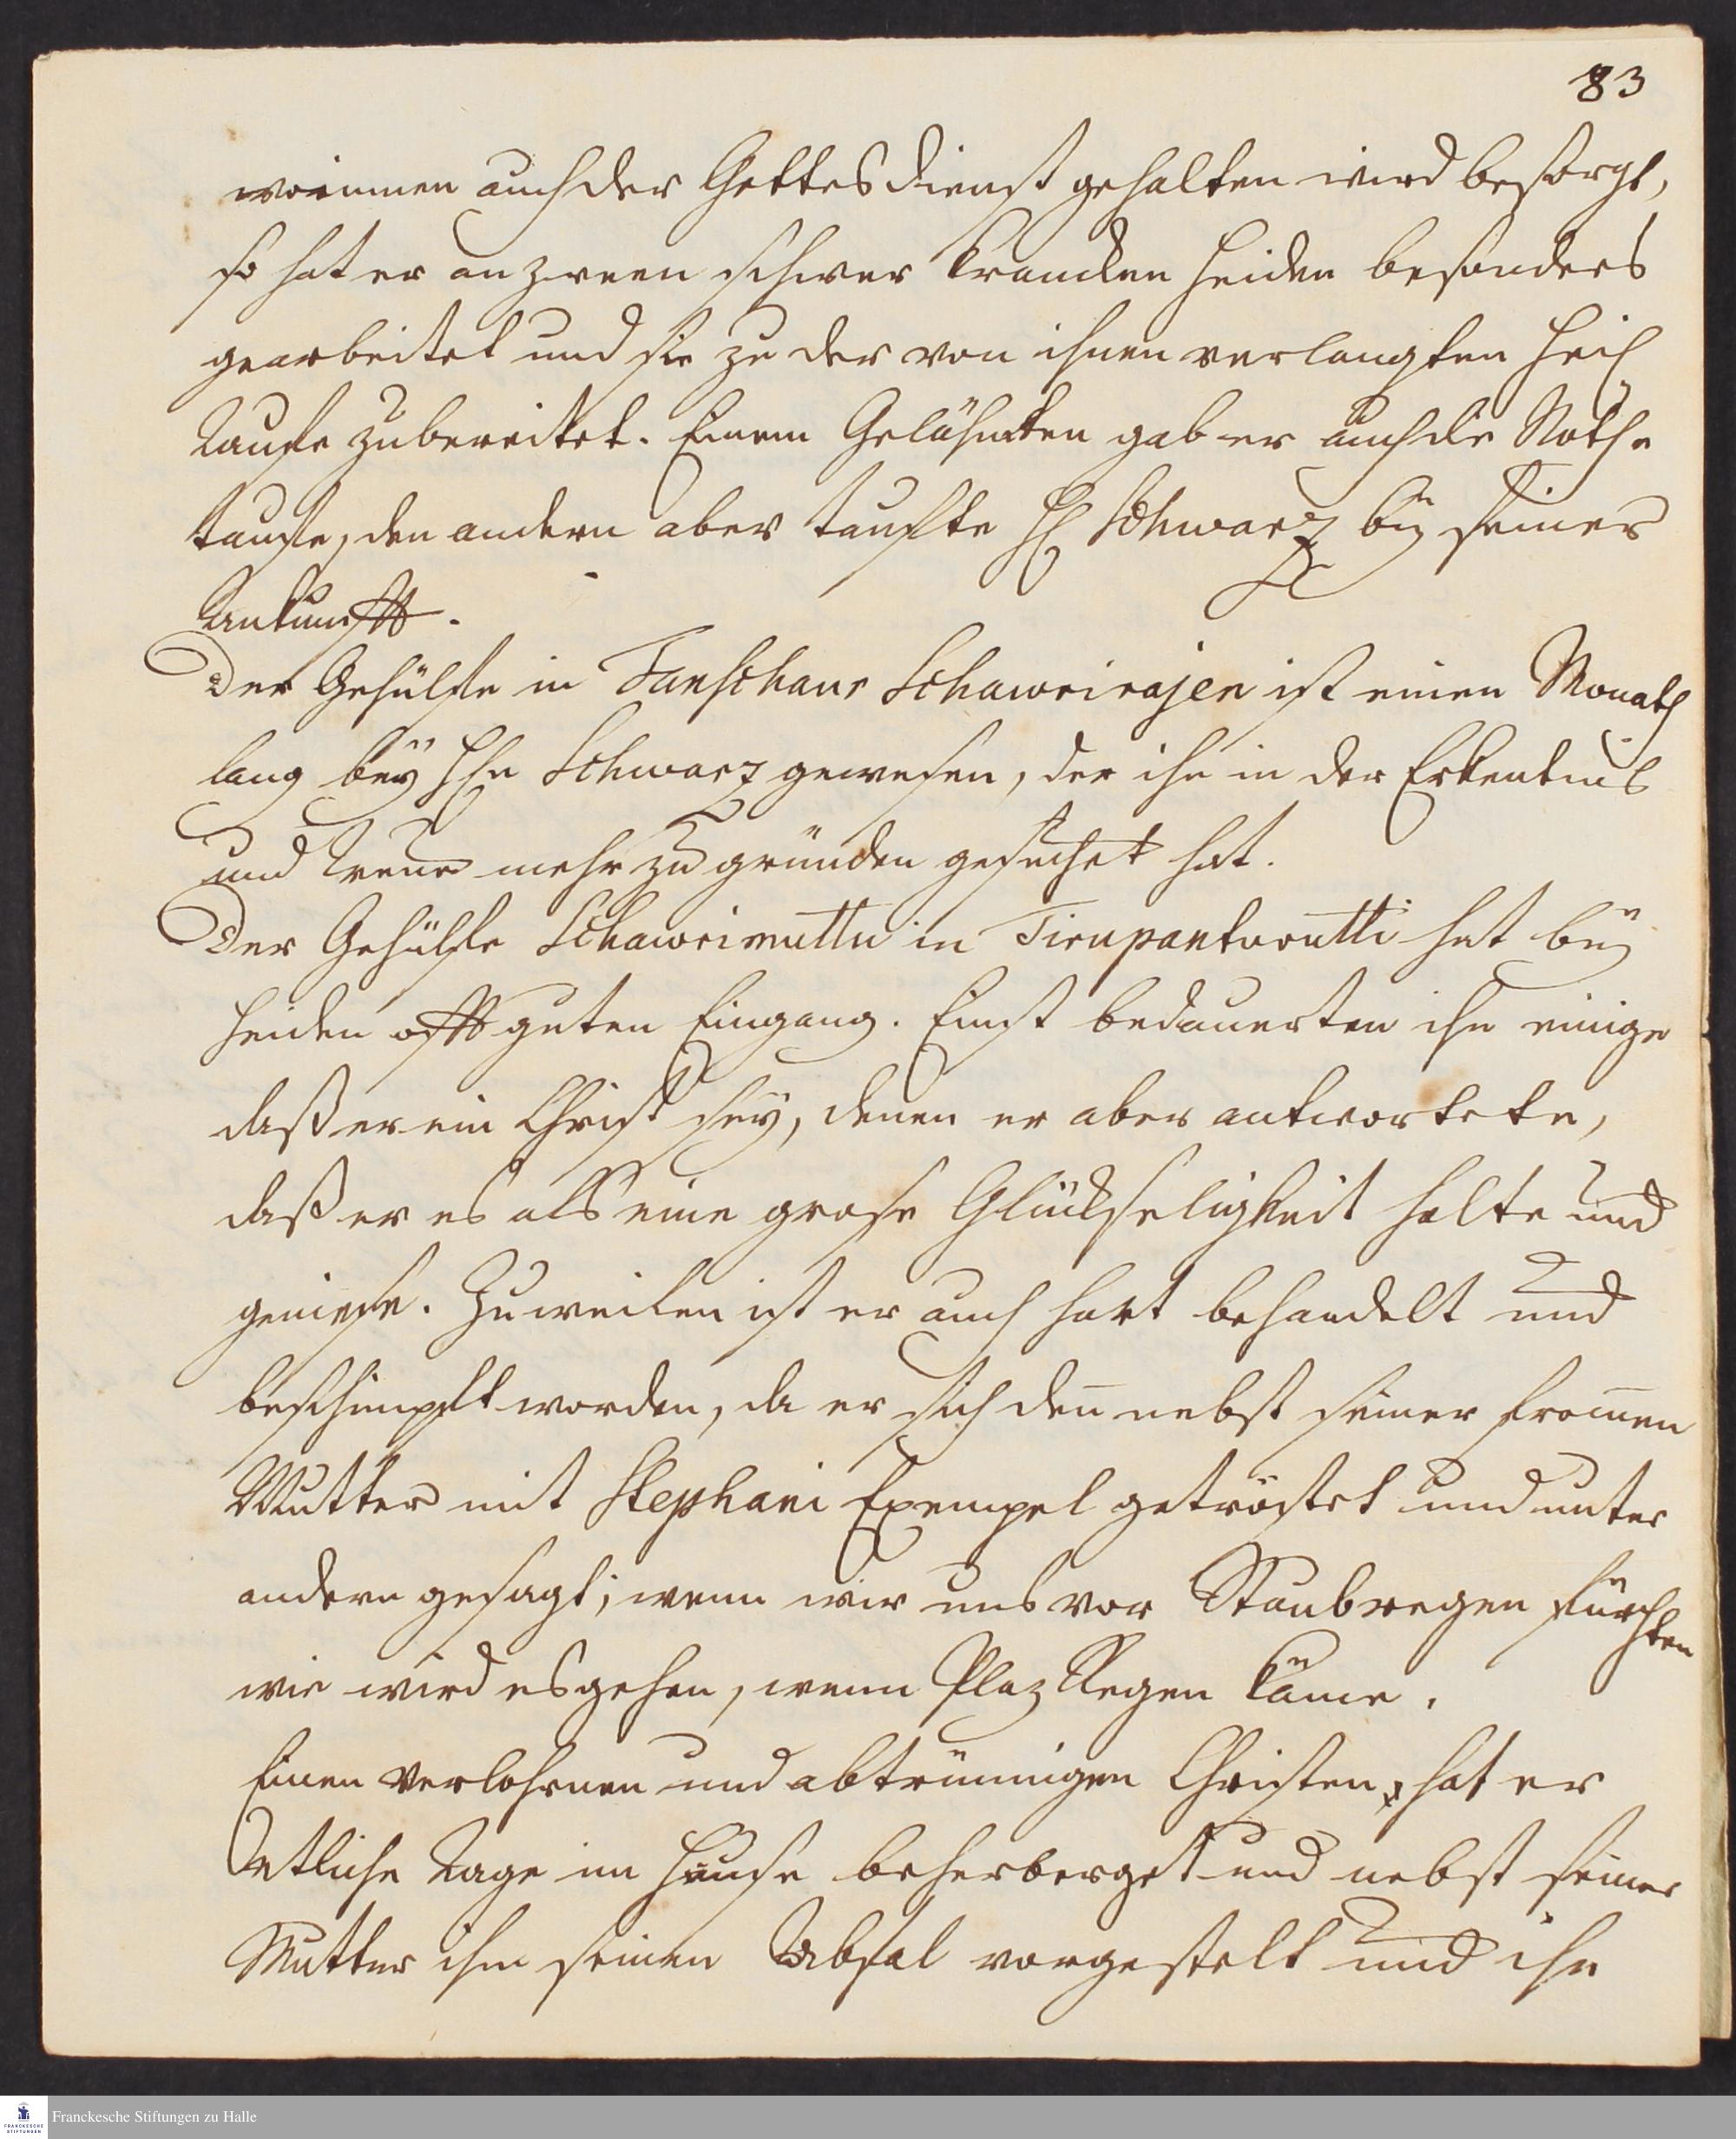 83
worinnen auch der Gottesdienst gehalten wird besorgt,
so hat er an zween schwer krancken Heiden besonders
gearbeitet und sie zu der von ihnen verlangten Heil
Taufe zubereitet. Einem Gelähmten gab er auch die Noth-
taufe, den andern aber taufte H Schwarz bey seiner
Ankunfft.
Der Gehülfe in Tanschaur Schawrirajen ist einen Monath
lang bey Hn Schwarz gewesen, der ihn in der Erkentniß
und Treue mehr zu gründen gesuchet hat.
Der Gehülfe Schawrimuttu in Tirupanturutti hat bey
Heiden offt guten Eingang. Einst bedauerten ihn einige
daß er ein Christ sey, denen er aber antwortete,
daß er es als eine grose Glückseligkeit halte und
geniese. Zuweilen ist er auch hart behandelt und
beschimpft worden, da er sich den̄ nebst seiner from̄en
Mutter mit Stephani Exempel getröstet und unter
andern gesagt; wenn wir uns vor Staubregen fürchten
wie wird es gehen, wenn Plaz Regen käme.
Einen verlohrnen und abtrünnigen Christen, hat er
etliche Tage im Hause beherberget und nebst seiner
Mutter ihm seinen Abfal vorgestelt und ihn
Franckesche Stiftungen zu Halle
FRANCKESCHE
STIFTUNGEN